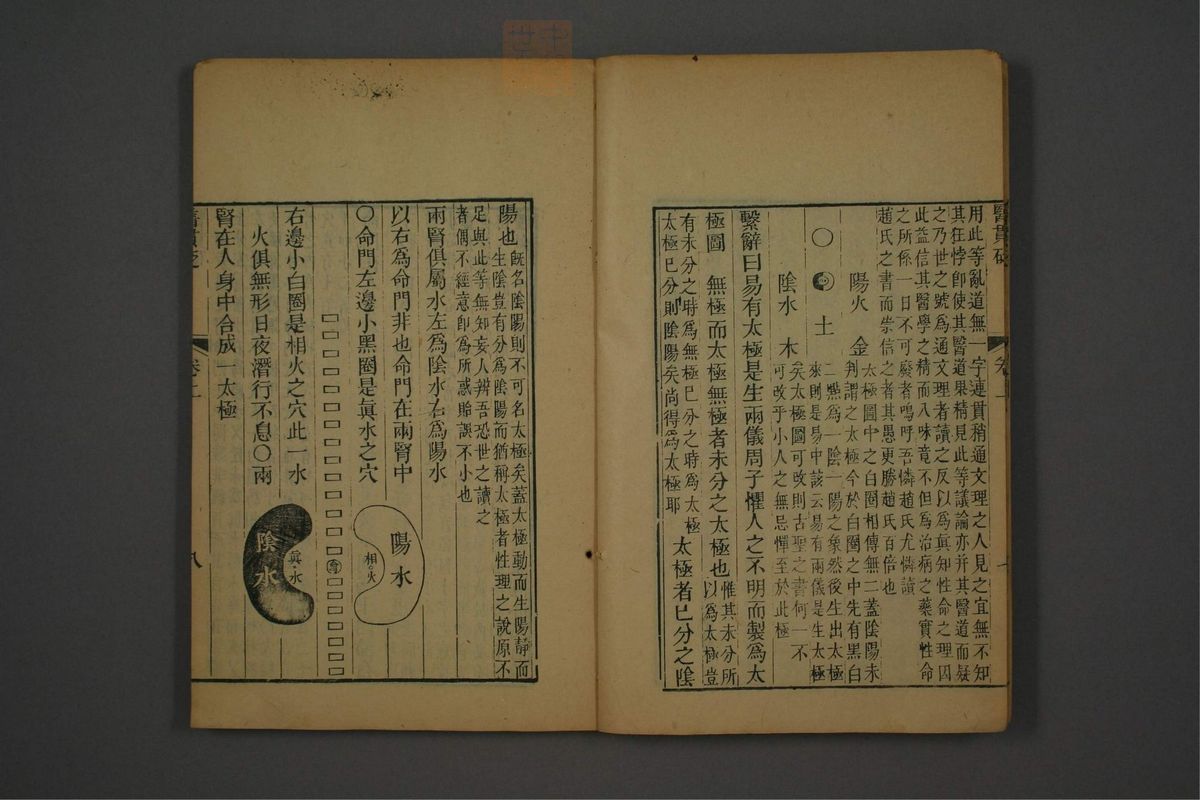 醫貫砭
卷上
用此等亂道無一字連貫稍通文理之人見之宜無不知
其狂悖卽使其醫道果精見此等議論亦并其醫道而疑
之乃世之號為通文理者讀之反以為眞知性命之理因
此益信其醫學之精而八味竟不但為治病之藥實性命
之所係一日不可廢者嗚呼吾憐趙氏尤憐讀
趙氏之書而崇信之者其愚更勝趙氏百倍也
陽火 金
太極圖中之白圈相傳無二蓋陰陽未
判謂之太極今於白圈之中先有黑白
○ 土
二㸃為一陰一陽之象然後生出太極
來則是易中該云易有兩儀是生太極
陰水 木
矣太極圖可改則古聖之書何一不
可改乎小人之無忌憚至於此極
繫辭曰易有太極是生兩儀周子懼人之不明而製為太
極圖 無極而太極無極者未分之太極也
惟其未分所
以為太極豈
有未分之時為無極已分之時為太極
太極已分則陰陽矣尚得為太極耶
太極者已分之陰
陽也
旣名陰陽則不可名太極矣蓋太極動而生陽靜而
生陰豈有分為陰陽而猶稱太極者性理之說原不
足與此等無知妄人辨吾恐世之讀之
者偶不經意卽為所惑貽誤不小也
兩腎俱屬水左為陰水右為陽水
以右為命門非也命門在兩腎中
○命門左邊小黑圈是眞水之穴
陽水
相火
命
右邊小白圈是相火之穴此一水
火俱無形日夜潛行不息○兩
陰水
眞水
腎在人身中合成一太極
醫貫砭
卷上
八